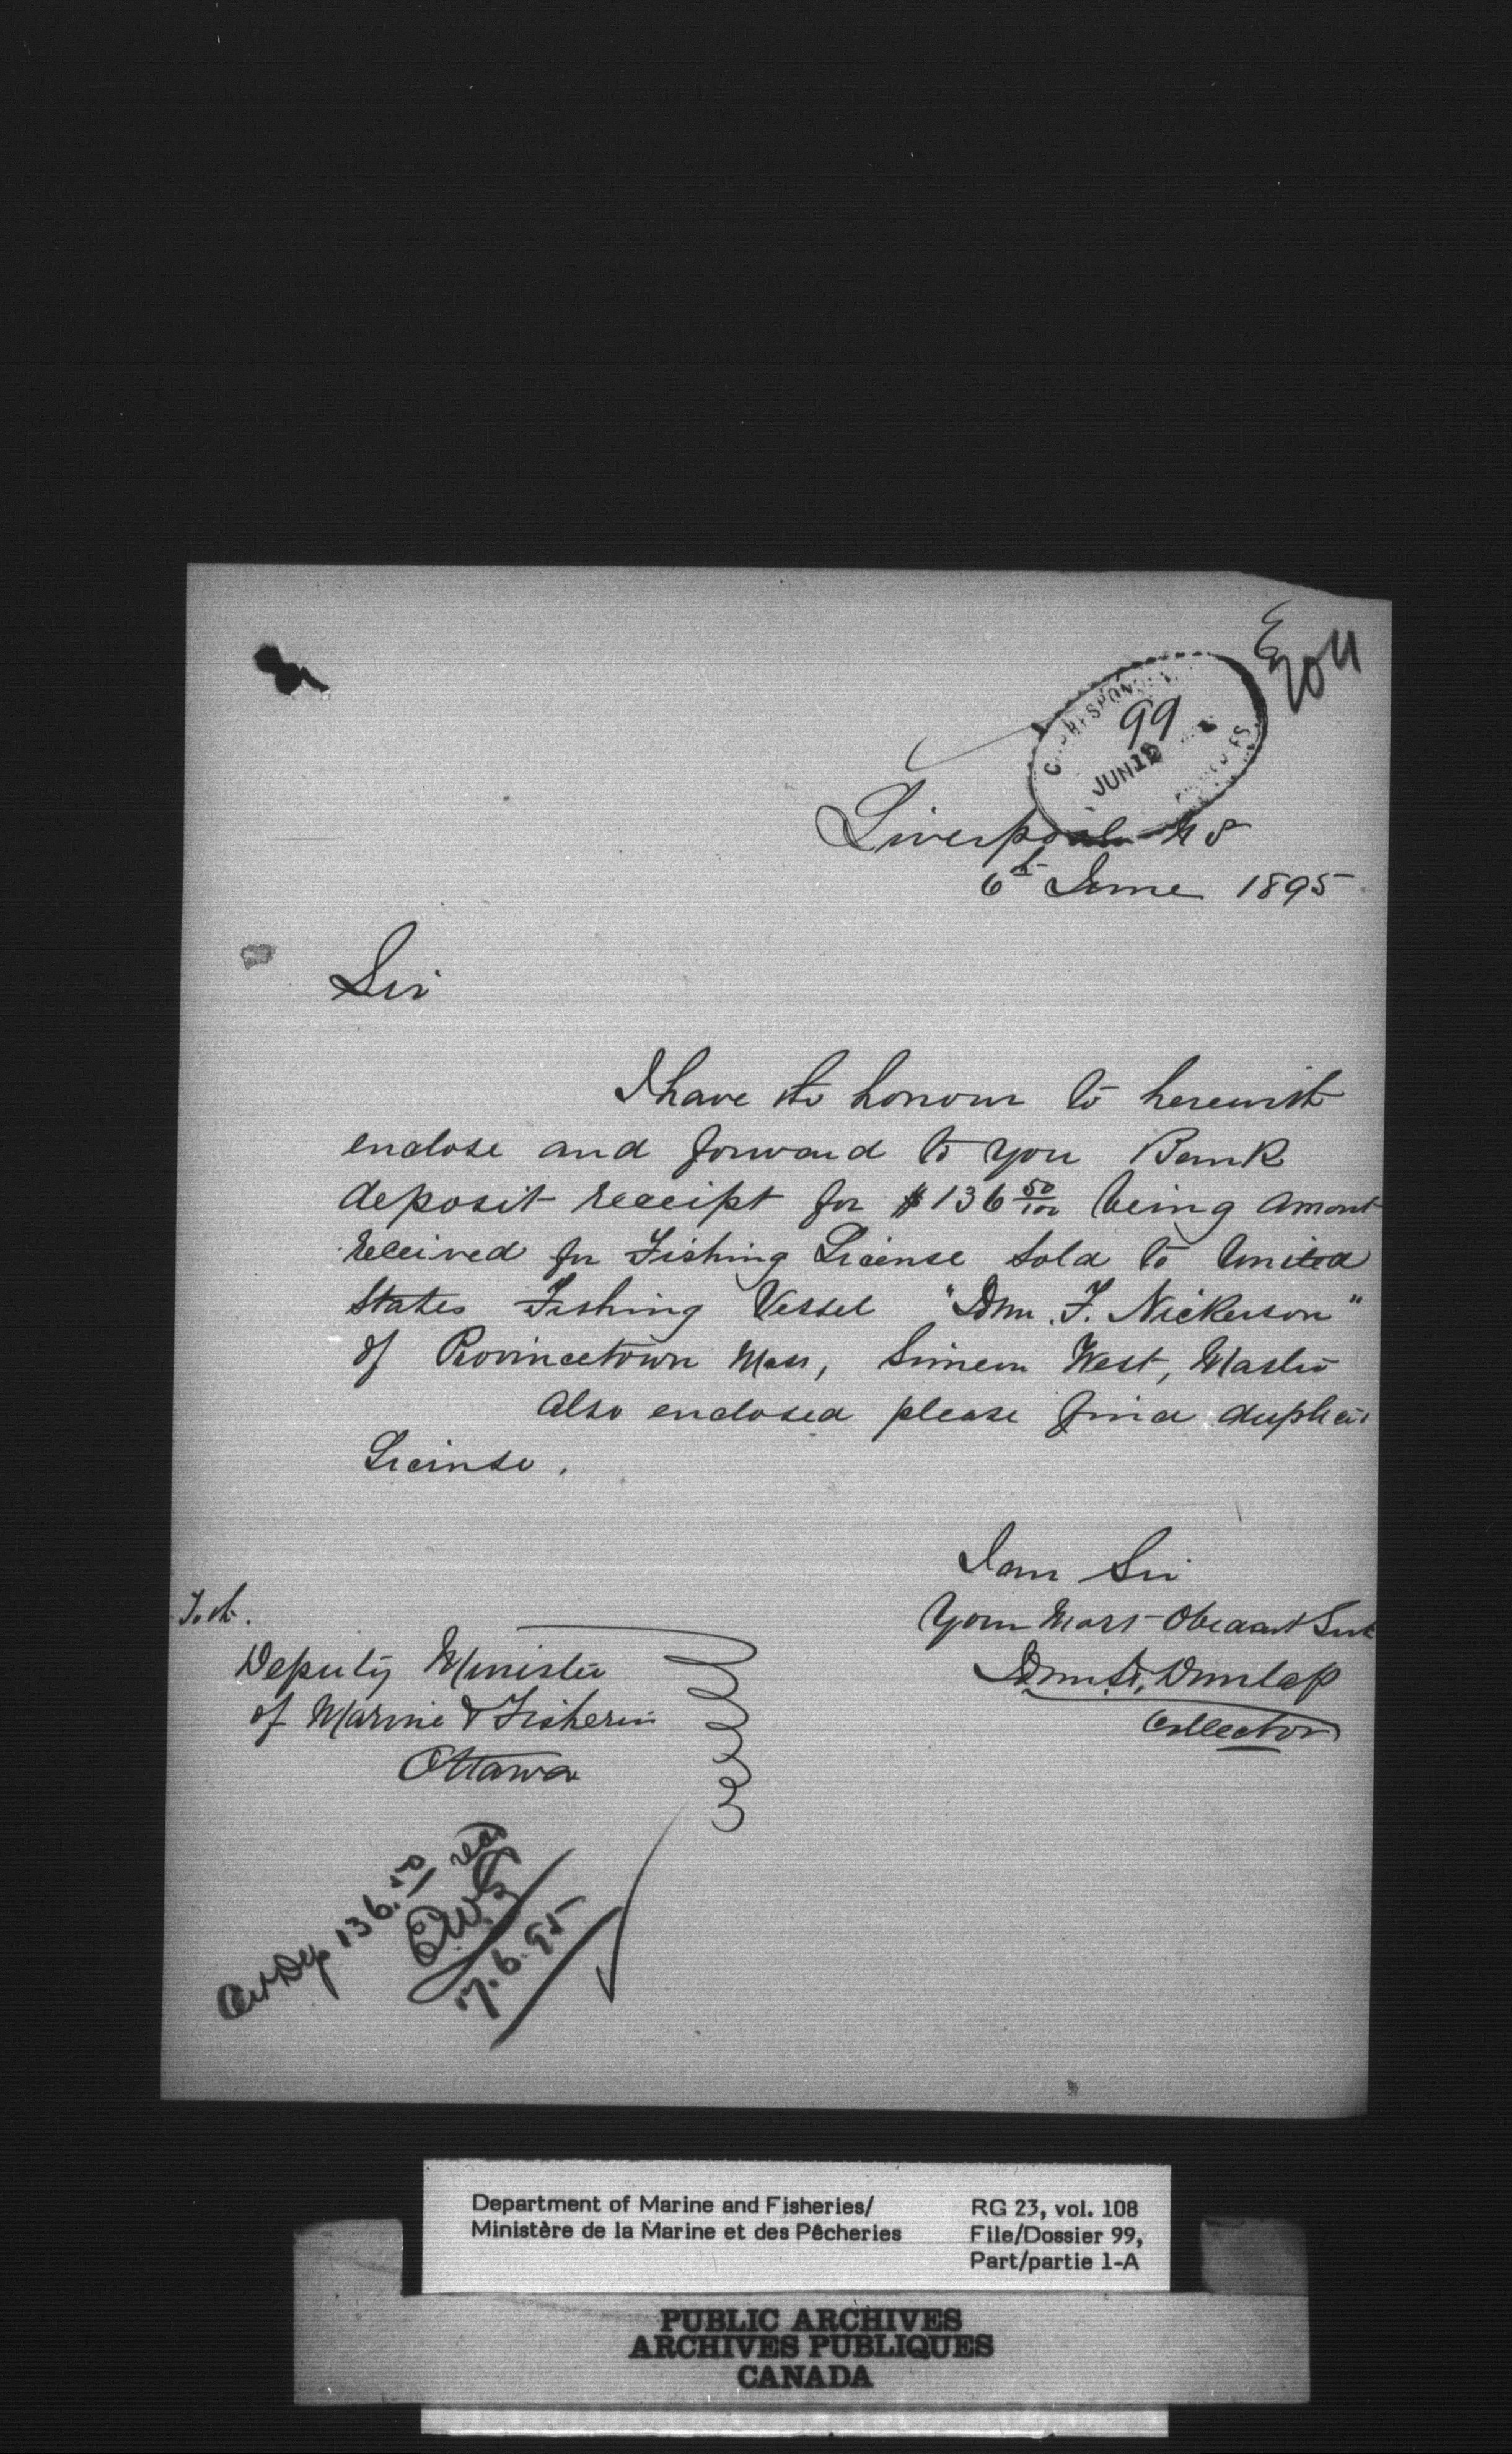 E
204
CORRESPON
99
JUN 12
Liverpool N S
6th June 1895
Sir
I have the honour to herewith
enclose and forward to you Bank
deposit receipt for $136 50/100 being amont
received for Fishing License sold to United
States Fishing Vessel "Wm. F. Nickerson"
of Provincetown Mass, Simeon West, Master
Also enclosed please find duplicate
License.
I am Sir
Your Most Obedient Svt
Dunlap
Collector
To the
Deputy Minister
of Marine & Fisheries
Ottawa
Cert Dep 136.50 recd
17.6.95
Department of Marine and Fisheries/
Ministère de la Marine et des Pêcheries
RG 23, vol. 108
File/Dossier 99,
Part/partie 1-A
PUBLIC ARCHIVES
ARCHIVES PUBLIQUES
CANADA